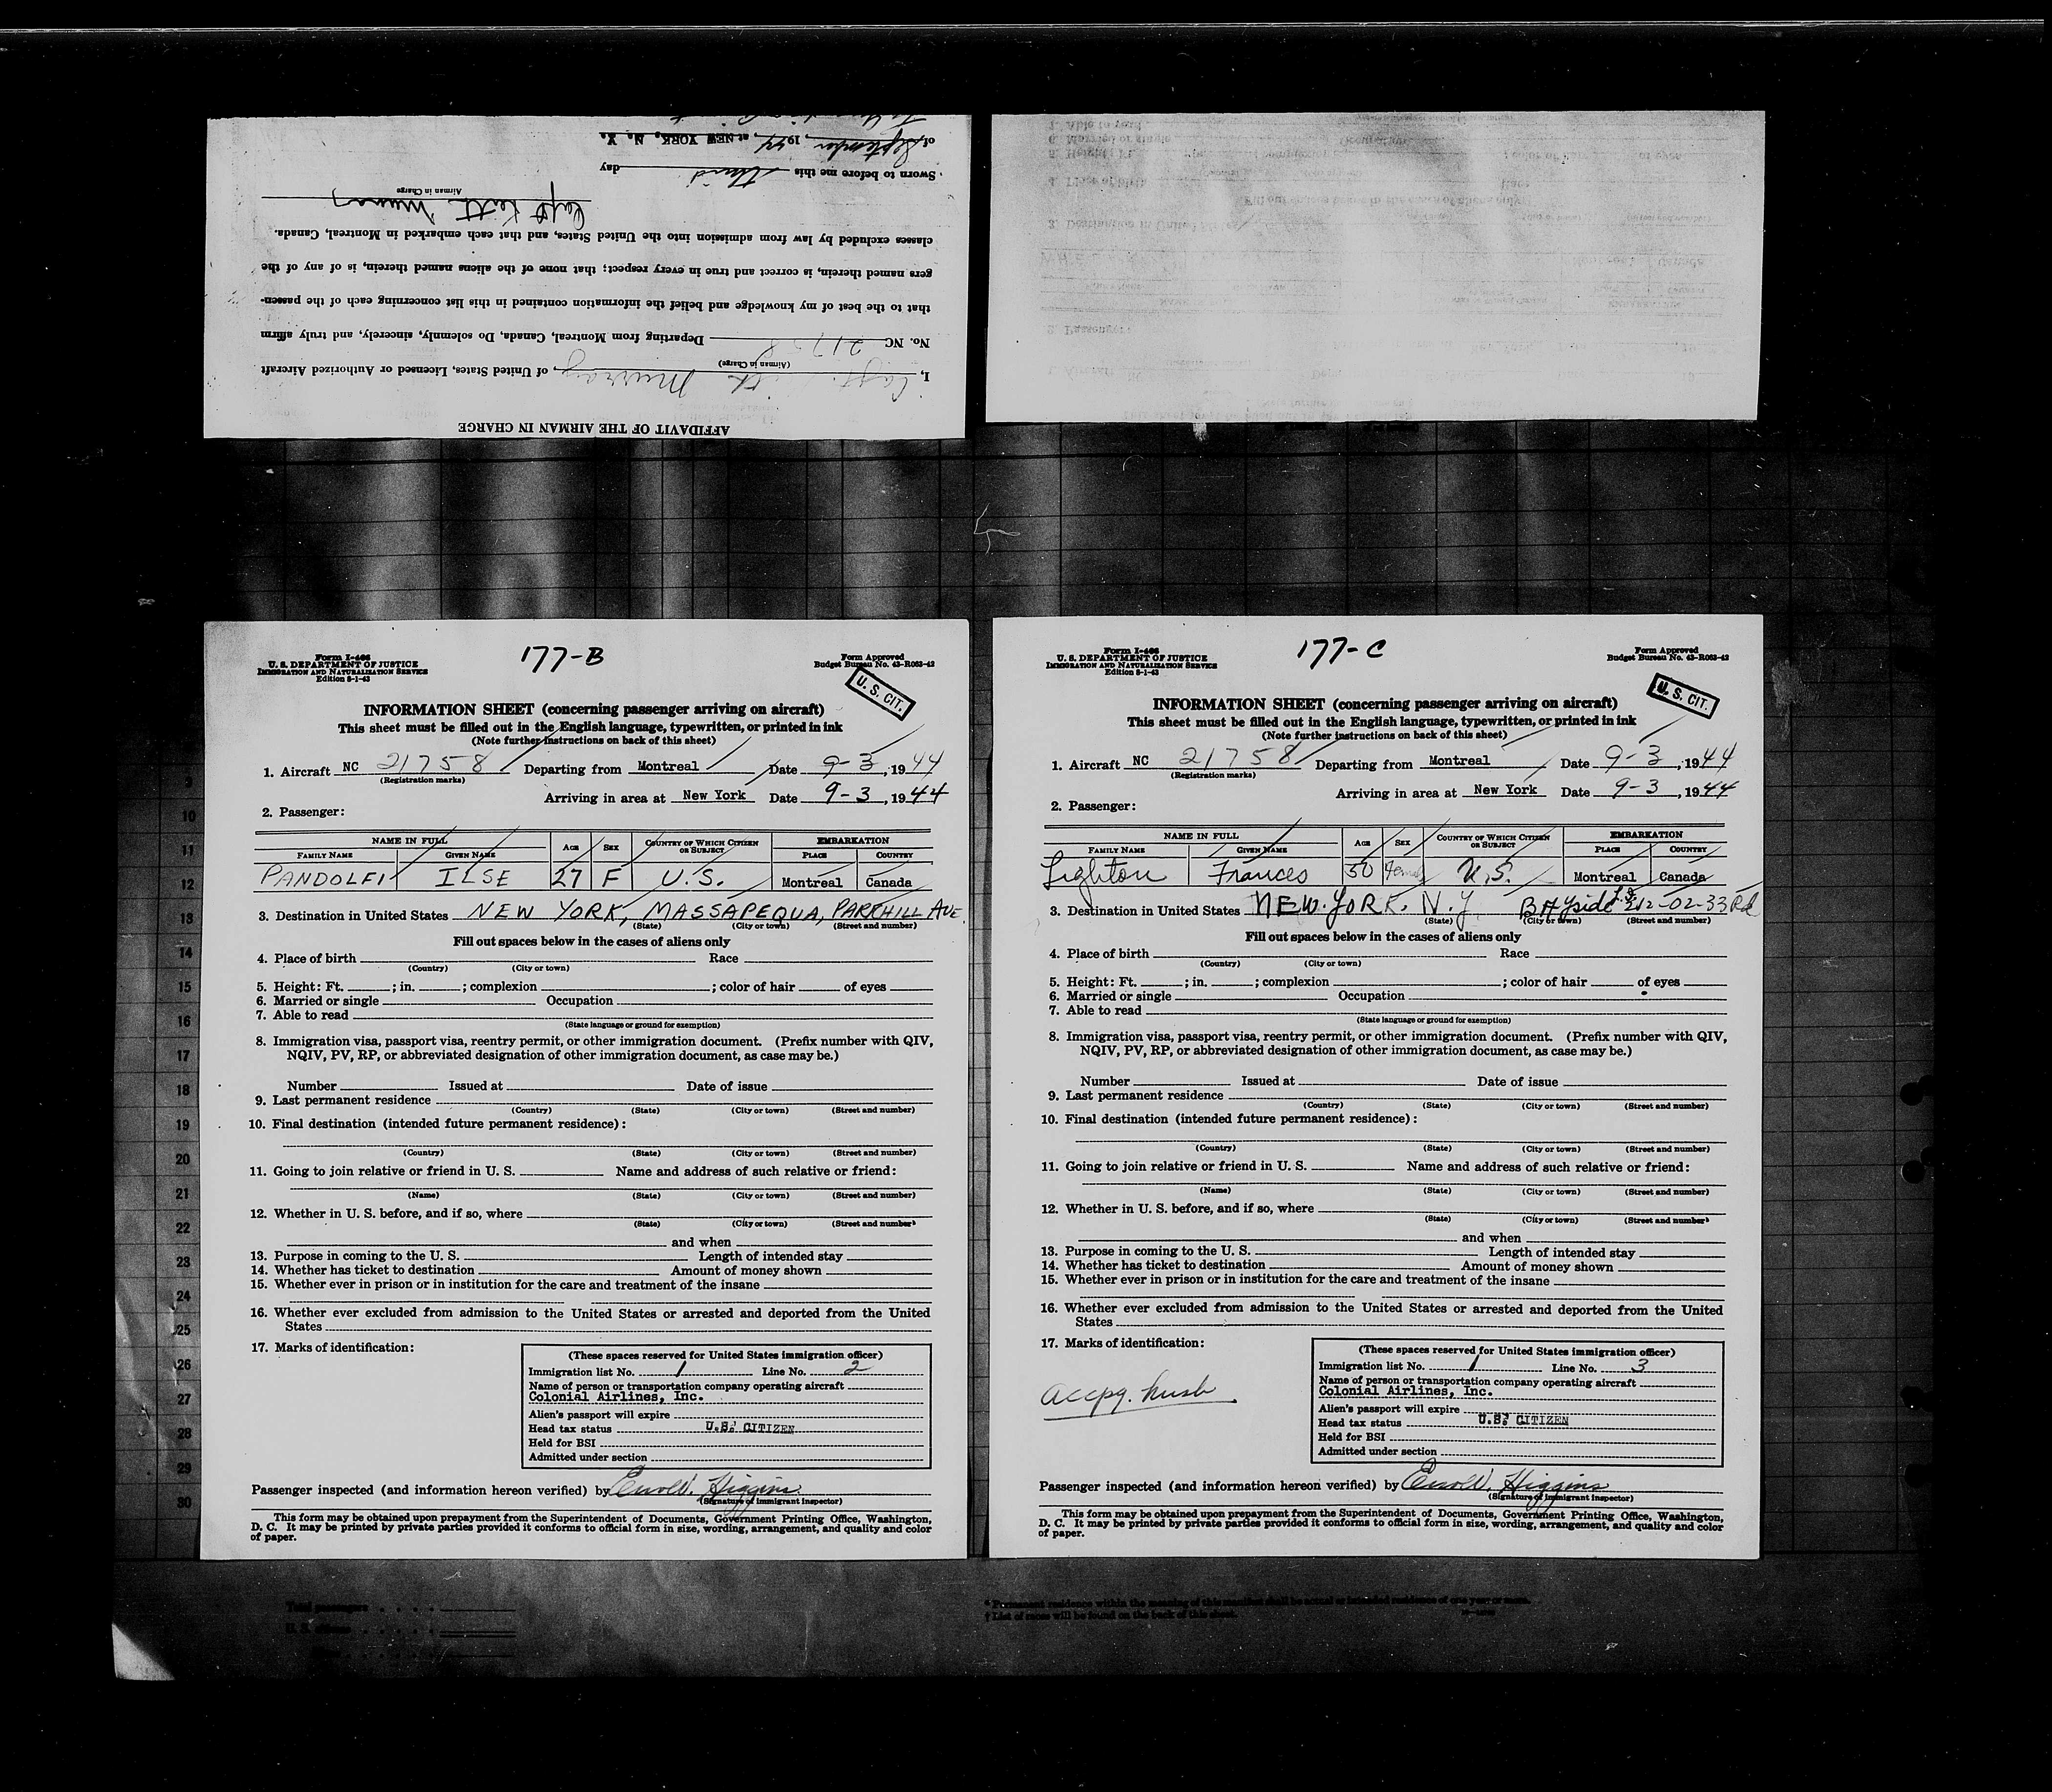 AFFIDAVIT OF THE AIRMAN IN CHARGE
I, Capt. Keith Murray, of United States, Licensed or Authorized Aircraft
(Airman in Charge)
No. NC 21758 Departing from Montreal, Canada, Do solemnly, sincerely, and truly affirm
that to the best of my knowledge and belief the information contained in this list concerning each of the passen-
gers named therein, is correct and true in every respect; that none of the aliens named therein, is of any of the
classes excluded by law from admission into the United States, and that each embarked in Montreal, Canada.
Capt Keith Murray
Airman in Charge
Sworn to before me this third day
of September, 1944, at NEW YORK, N. Y.
Form I-466
U. S. DEPARTMENT OF JUSTICE
IMMIGRATION AND NATURALIZATION SERVICE
Edition 8-1-43
177-B
Form Approved
Budget Bureau No. 43-R063-42
U. S. CIT.
INFORMATION SHEET (concerning passenger arriving on aircraft)
This sheet must be filled out in the English language, typewritten, or printed in ink
(Note further instructions on back of this sheet)
1. Aircraft NC 21758 Departing from Montreal Date 9-3, 1944
(Registration marks)
Arriving in area at New York Date 9-3, 1944
2. Passenger:
NAME IN FULL AGE SEX COUNTRY OF WHICH CITIZEN OR SUBJECT EMBARKATION
FAMILY NAME GIVEN NAME PLACE COUNTRY
PANDOLFI ILSE 27 F U.S. Montreal Canada
3. Destination in United States NEW YORK, MASSAPEQUA, PARKHILL AVE.
(State) (City or town) (Street and number)
Fill out spaces below in the cases of aliens only
4. Place of birth Race
(Country) (City or town)
5. Height: Ft. ; in. ; complexion ; color of hair of eyes
6. Married or single Occupation
7. Able to read
(State language or ground for exemption)
8. Immigration visa, passport visa, reentry permit, or other immigration document. (Prefix number with QIV,
NQIV, PV, RP, or abbreviated designation of other immigration document, as case may be.)
Number Issued at Date of issue
9. Last permanent residence
(Country) (State) (City or town) (Street and number)
10. Final destination (intended future permanent residence):
(Country) (State) (City or town) (Street and number)
11. Going to join relative or friend in U. S. Name and address of such relative or friend:
(Name) (State) (City or town) (Street and number)
12. Whether in U. S. before, and if so, where
(State) (City or town) (Street and number)
and when
13. Purpose in coming to the U. S. Length of intended stay
14. Whether has ticket to destination Amount of money shown
15. Whether ever in prison or in institution for the care and treatment of the insane
16. Whether ever excluded from admission to the United States or arrested and deported from the United
States
17. Marks of identification:
(These spaces reserved for United States immigration officer)
Immigration list No. 1 Line No. 2
Name of person or transportation company operating aircraft
Colonial Airlines, Inc.
Alien's passport will expire
Head tax status U.S. CITIZEN
Held for BSI
Admitted under section
Passenger inspected (and information hereon verified) by Errol W. Higgins
(Signature of immigrant inspector)
This form may be obtained upon prepayment from the Superintendent of Documents, Government Printing Office, Washington,
D. C. It may be printed by private parties provided it conforms to official form in size, wording, arrangement, and quality and color
of paper.
Form I-466
U. S. DEPARTMENT OF JUSTICE
IMMIGRATION AND NATURALIZATION SERVICE
Edition 8-1-43
177-C
Form Approved
Budget Bureau No. 43-R063-42
U. S. CIT.
INFORMATION SHEET (concerning passenger arriving on aircraft)
This sheet must be filled out in the English language, typewritten, or printed in ink
(Note further instructions on back of this sheet)
1. Aircraft NC 21758 Departing from Montreal Date 9-3, 1944
(Registration marks)
Arriving in area at New York Date 9-3, 1944
2. Passenger:
NAME IN FULL AGE SEX COUNTRY OF WHICH CITIZEN OR SUBJECT EMBARKATION
FAMILY NAME GIVEN NAME PLACE COUNTRY
Lighton Frances 50 Female U.S. Montreal Canada
3. Destination in United States NEW YORK. N.Y. BAYside L.I. 212-02-33 Rd
(State) (City or town) (Street and number)
Fill out spaces below in the cases of aliens only
4. Place of birth Race
(Country) (City or town)
5. Height: Ft. ; in. ; complexion ; color of hair of eyes
6. Married or single Occupation
7. Able to read
(State language or ground for exemption)
8. Immigration visa, passport visa, reentry permit, or other immigration document. (Prefix number with QIV,
NQIV, PV, RP, or abbreviated designation of other immigration document, as case may be.)
Number Issued at Date of issue
9. Last permanent residence
(Country) (State) (City or town) (Street and number)
10. Final destination (intended future permanent residence):
(Country) (State) (City or town) (Street and number)
11. Going to join relative or friend in U. S. Name and address of such relative or friend:
(Name) (State) (City or town) (Street and number)
12. Whether in U. S. before, and if so, where
(State) (City or town) (Street and number)
and when
13. Purpose in coming to the U. S. Length of intended stay
14. Whether has ticket to destination Amount of money shown
15. Whether ever in prison or in institution for the care and treatment of the insane
16. Whether ever excluded from admission to the United States or arrested and deported from the United
States
17. Marks of identification:
accpg. husb
(These spaces reserved for United States immigration officer)
Immigration list No. 1 Line No. 3
Name of person or transportation company operating aircraft
Colonial Airlines, Inc.
Alien's passport will expire
Head tax status U.S. CITIZEN
Held for BSI
Admitted under section
Passenger inspected (and information hereon verified) by Errol W. Higgins
(Signature of immigrant inspector)
This form may be obtained upon prepayment from the Superintendent of Documents, Government Printing Office, Washington,
D. C. It may be printed by private parties provided it conforms to official form in size, wording, arrangement, and quality and color
of paper.
* Permanent residence within the meaning of this manifest shall be actual or intended residence of one year or more.
† List of races will be found on the back of this sheet.